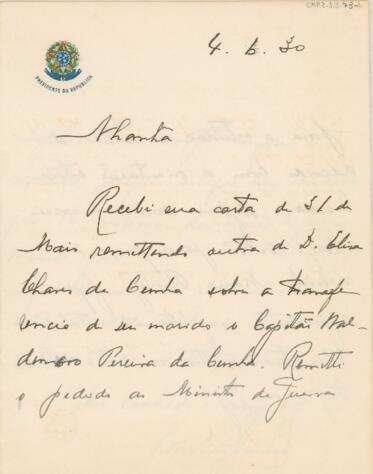 PRESIDENTE DA REPUBLICA
4. 6. 30
Nhonhô
Recebi sua carta de 31 de
Maio remettendo outra de D. Elisa
Chaves da Cunha sobre a transfe
rencia de seu marido o Capitão Wal-
domoro Pereira da Cunha. Remetti
o pedido ao Ministro da Guerra